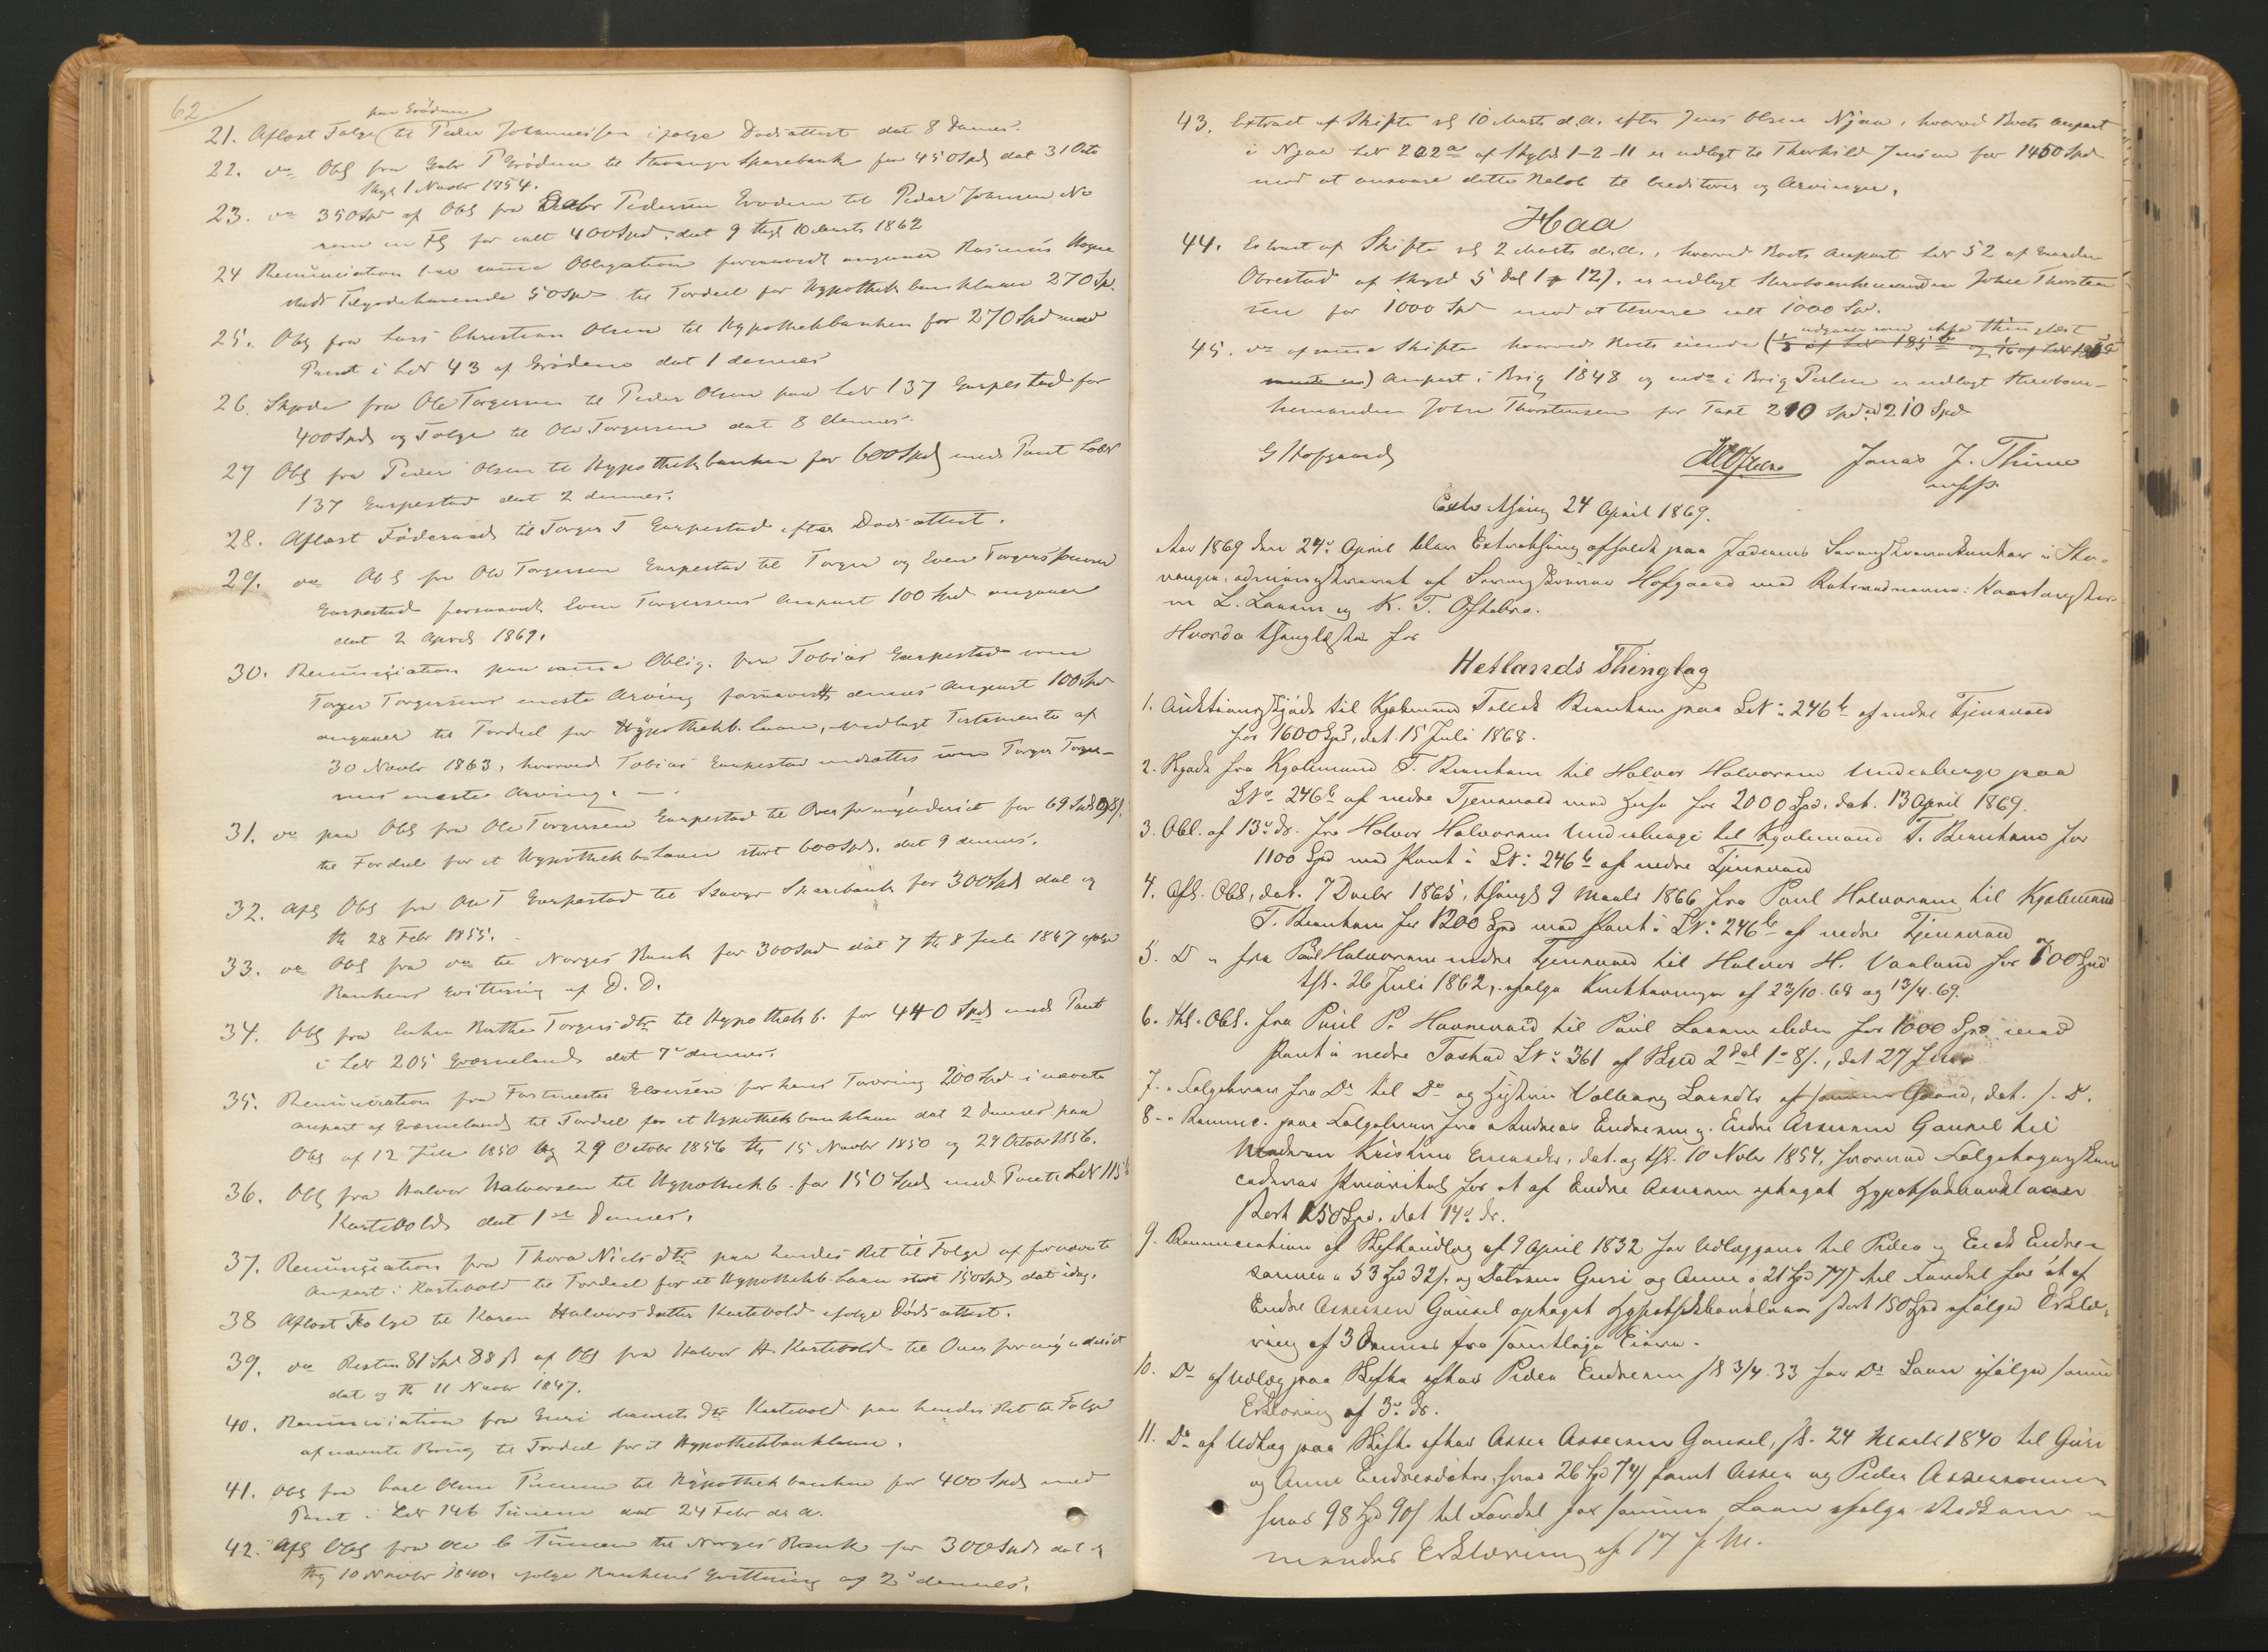 62
paa Grödem
21. Aflæst Folge til Peder Johannessen ifølge Dødsattest dat 8 dennes.
22. do Obl fra Gabr P Grödem til Stavanger Sparebank for 450 Spd dat 31 Octo
thgl 1 Novbr 1854.
23. do 350 Spd af Obl fra Gabr Pedersen Grödem til Peder Johnsen
for ialt 400 Spd, dat 9 thgl 10 Marts 1862
24 Renunciation paa samme Obligation forsaavidt angaaer Rasmus
Tilgodehavende 50 Spd til Fordeel for Hypothekbanklaan 270 Sp.
25. Obl fra Lars Christian Olsen til Hypothekbanken for 270 Spd med
Pant i LNr 43 af Grödem dat 1 dennes
26. Skjøde fra Ole Torgersen til Peder Olsen paa LNr 137 Garpestad for
400 Spd og Folge til Ole Torgersen dat 8 dennes.
27 Obl fra Peder Olsen til Hypothekbanken for 600 Spd med Pant LNr
137 Garpestad dat 2 dennes.
28. Aflæst Föderaad til Torger T Garpestad efter Dødsattest.
29. do Obl fra Ole Torgersen Garpestad til Torger og Even Torgerssønner
Garpestad forsaavidt Even Torgersens Anpart 100 Spd angaaer
dat 2 April 1869.
30. Renunciation paa samme Oblig. fra Tobias Garpestad som
Torger Torgersens eneste Arving forsaavidt dennes Anpart 100 Spd
angaaer til Fordeel for Hypothekb. laan, vedlagt Testamente af
30 Novbr 1863, hvorved Tobias Garpestad indsættes som Torger Torger-
sens eneste Arving. —
31. do paa Obl fra Ole Torgersen Garpestad til Overformynderiet for 69 Spd
til Fordeel for et Hypothekb. Laan stort 600 Spd, dat 9 dennes.
32. Afl Obl fra Ole T Garpestad til Stavgr Sparebank for 300 Spd dat og
th 28 Febr 1855.
33. do Obl fra do til Norges Bank for 300 Spd dat 7 th 8 Juli 1847 ifølge
Bankens Qvittering af D. D.
34. Obl fra Enken Berthe Torgersdtr til Hypothekb. for 440 Spd med Pant
i LNr 205 Qværneland dat 7de dennes.
35. Renunciation fra Elversen for hans Fordring 200 Spd i nævnte
Anpart af Qværneland til Fordeel for et Hypothekbanklaan dat 2 dennes paa
Obl af 12 Febr 1850 og 29 October 1856 th 15 Novbr 1850 og 29 October 1856.
36. Obl fra Halvor Halvorsen til Hypothekb. for 150 Spd med Pant i LNr 115
Kartevold dat 1ste dennes.
37. Renunciation fra Thora Nielsdtr paa hendes Ret til Folge af fornævnte
Anpart i Kartevold til Fordeel for et Hypothekb. Laan stort 150 Spd dat idag.
38 Aflæst Folge til Karen Halvorsdatter Kartevold ifølge Dødsattest.
39. do Resten 81 Spd 88 ß af Obl fra Halvor H. Kartevold til Overformynderiet
dat og th 11 Novbr 1847.
40. Renunciation fra Guri dtr Kartevold paa hendes Ret til Folge
af nævnte Brug til Fordeel for et Hypothekbanklaan.
41. Obl fra Carl Olsen Tunem til Hypothekbanken for 400 Spd med
Pant i LNr 146 Tunem dat 24 Febr d. A.
42. Afl Obl fra Ole C Tunem til Norges Bank for 300 Spd dat og
thg 10 Novbr 1840. ifølge Bankens Qvittering af 2de dennes.
43. Extract af Skifte sl 10 Marts d.A. efter Jens Olsen Njaa, hvorved Boets Anpart
i Njaa LNr 202a af Skyld 1-2-11 er udlagt til Thorkild Jensen for 1450 Spd
mod at ansvare dette Beløb til Creditorer og Arvinger.
Haa
44. Extract af Skifte sl 2 Marts d.A., hvorved Boets Anpart LNr 52 af Gaarden
Obrestad af Skyld 5 Dal 1 12, er udlagt Stervboenkemanden John Thorsten
sen for 1000 Spd mod at besvare ialt 1000 Spd.
ikke thinglæst
45. do af samme Skifte hvorved Boets eiende (1/3 af LNr 185 og 1/6 af LNr
) Anpart i Brig 1848 og i Brig Perlen er udlagt Stervboen-
kemanden John Thorstensen for Taxt 210 Spd 210 Spd
G Hofgaard Jonas J. Thime
mpp.
Extrathing 24 April 1869.
Aar 1869 den 24de April blev Extrathing afholdt paa Jæderens Sorenskriverkontor i Sta-
vanger, administreret af Sorenskriver Hofgaard med Retsvidnerne:
L. Larsen og K. T. Oftebro.
Hvorda thinglæstes for
Hetlands Thinglag
1. Auktionsskjøde til Kjølemund Tollek Brantham paa LNr 246b af nedre Tjensvold
for 1600 Spd, dat. 15 Juli 1868.
2. Skjøde fra Kjølemund T. Brantham til Halvor Halvorsen Underberge paa
LNr 246b af nedre Tjensvold med Huse for 2000 Spd. dat. 13 April 1869.
3. Obl. af 13de ds. fra Halvor Halvorsen Underberge til Kjølemund T. Brantham for
1100 Spd med Pant i LNr 246b af nedre Tjensvold
4. Afl. Obl. dat. 7 Decbr 1865, thingl 9 Marts 1866 fra Poul Halvorsen til Kjølemund
T. Brantham for 1200 Spd med Pant i LNr 246b af nedre Tjensvold
5. Do fra Poul Halvorsen nedre Tjensvold til Halvor H. Vaaland for 700 Spd
thl. 26 Juli 1862, ifølge Kvitteringer af 23/10.68 og 13/4.69.
6. Thl. Obl. fra Poul P. Haavevold til Poul Larsen for 1000 Spd med
Pant i nedre Tastad LNr 361 af Skyld 2 dal 1-8ß, dat 27 Janr
7. Folgebrev fra Do til Do og Hustru Valborg Larsdtr af samme Gaard, dat. s. D.
8. Renunc. paa Folgebrev fra Andreas Endresen og Endre Assersen Gausel til
Moderen Kristine dat. og thl. 10 Novbr 1854, hvorved Folgetageren
cederer Prioritet for et af Endre Assersen optaget Hypothekbanklaan
stort 150 Spd, dat 14de ds.
9. Renunciation af Skiftesudlæg af 9 April 1832 for Udlæggene til Peder og Enok Endre-
sønner a 53 Spd 32ß og Døtrene Guri og Anne a 21 Spd 77ß til Fordel for et af
Endre Assersen Gausel optaget Hypothekbanklaan stort 150 Spd ifølge Erklæ-
ring af 3 dennes fra samtlige Eiere.
10. Do af Udlæg paa Skifte efter Peder Endresen sl 3/4.33 for Do Laan ifølge samme
Erklæring af 3de ds.
11. Do af Udlæg paa Skifte efter Asser Assersen Gausel, sl. 24 Marts 1840 til Guri
og Anne Endresdøtre, hver 26 Spd 74ß samt Asser og Peder Assersønner
hver 98 Spd 90ß til Fordel for samme Laan ifølge Vedkom-
mendes Erklæring af 17 f. M.